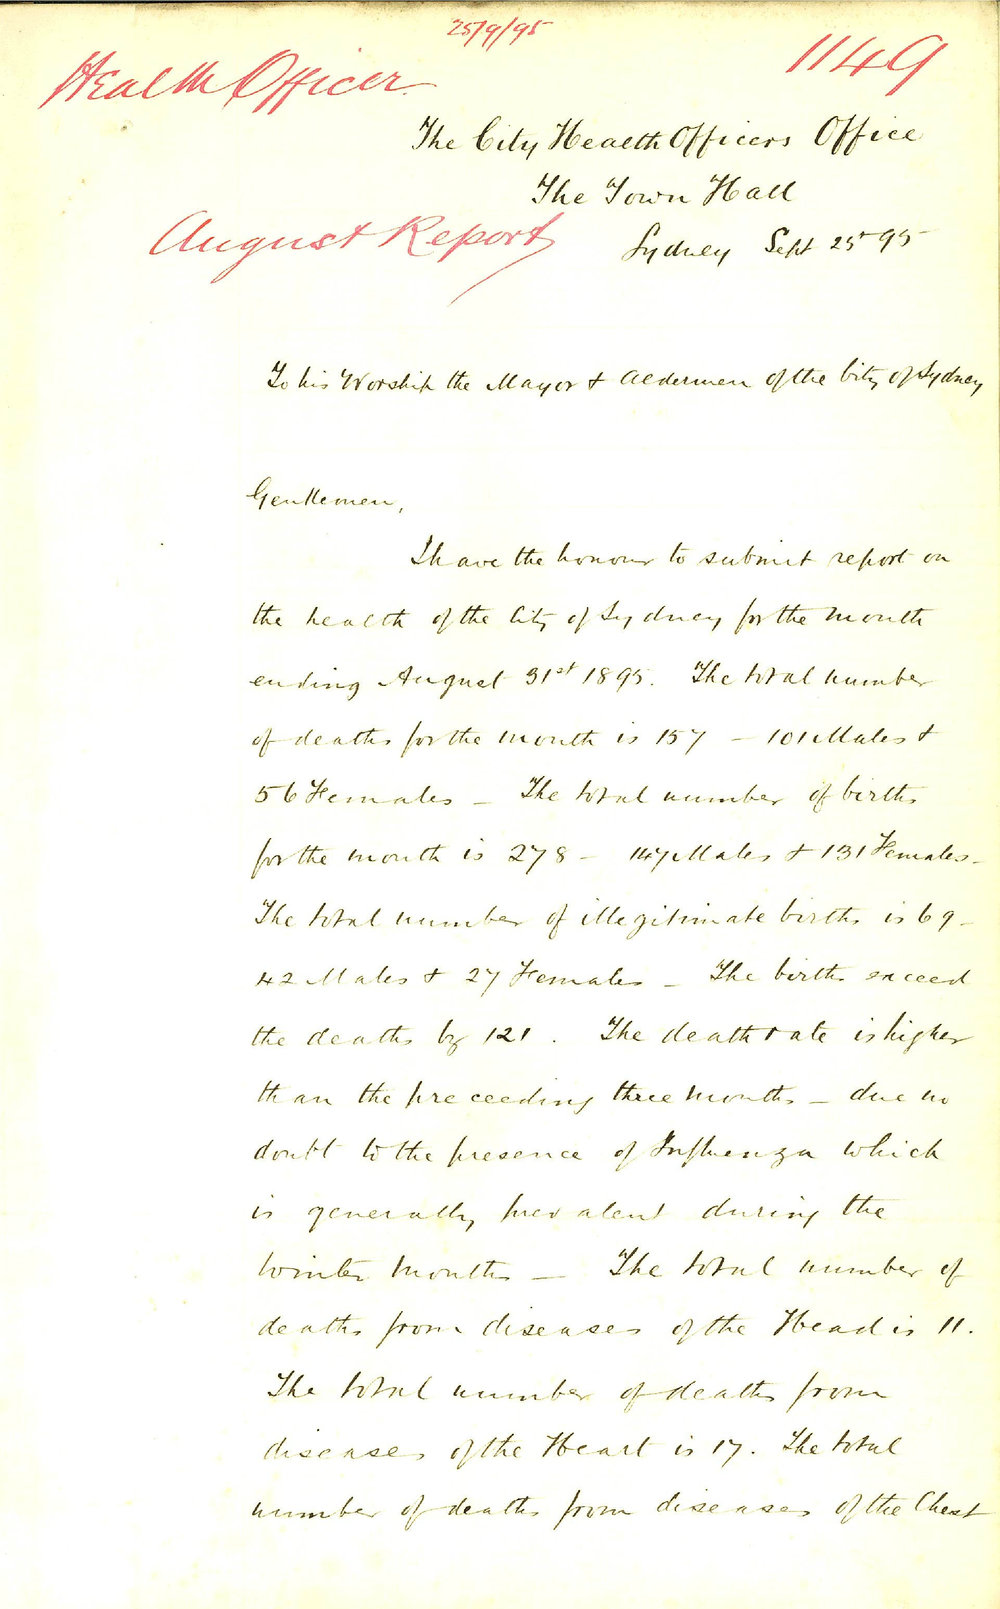 25/9/95
Health Officer
1149
The City Health Officers Office
The Town Hall
August Report
Sydney Sept 25th 95
To his Worship the Mayor & Aldermen of the City of Sydney
Gentlemen,
I have the honour to submit report on
the health of the City of Sydney for the month
ending August 31st 1895. The total number
of deaths for the month is 157 – 101 Males &
56 Females – The total number of births
for the month is 278 – 147 Males & 131 Females –
The total number of illegitimate births is 69 –
42 Males & 27 Females – The births exceed
the deaths by 121. The death rate is higher
than the preceeding three months – due no
doubt to the presence of Influenza which
is generally prevalent during the
Winter Months – The total number of
deaths from diseases of the Head is 11.
The total number of deaths from
diseases of the Heart is 17. The total
number of deaths from diseases of the Chest